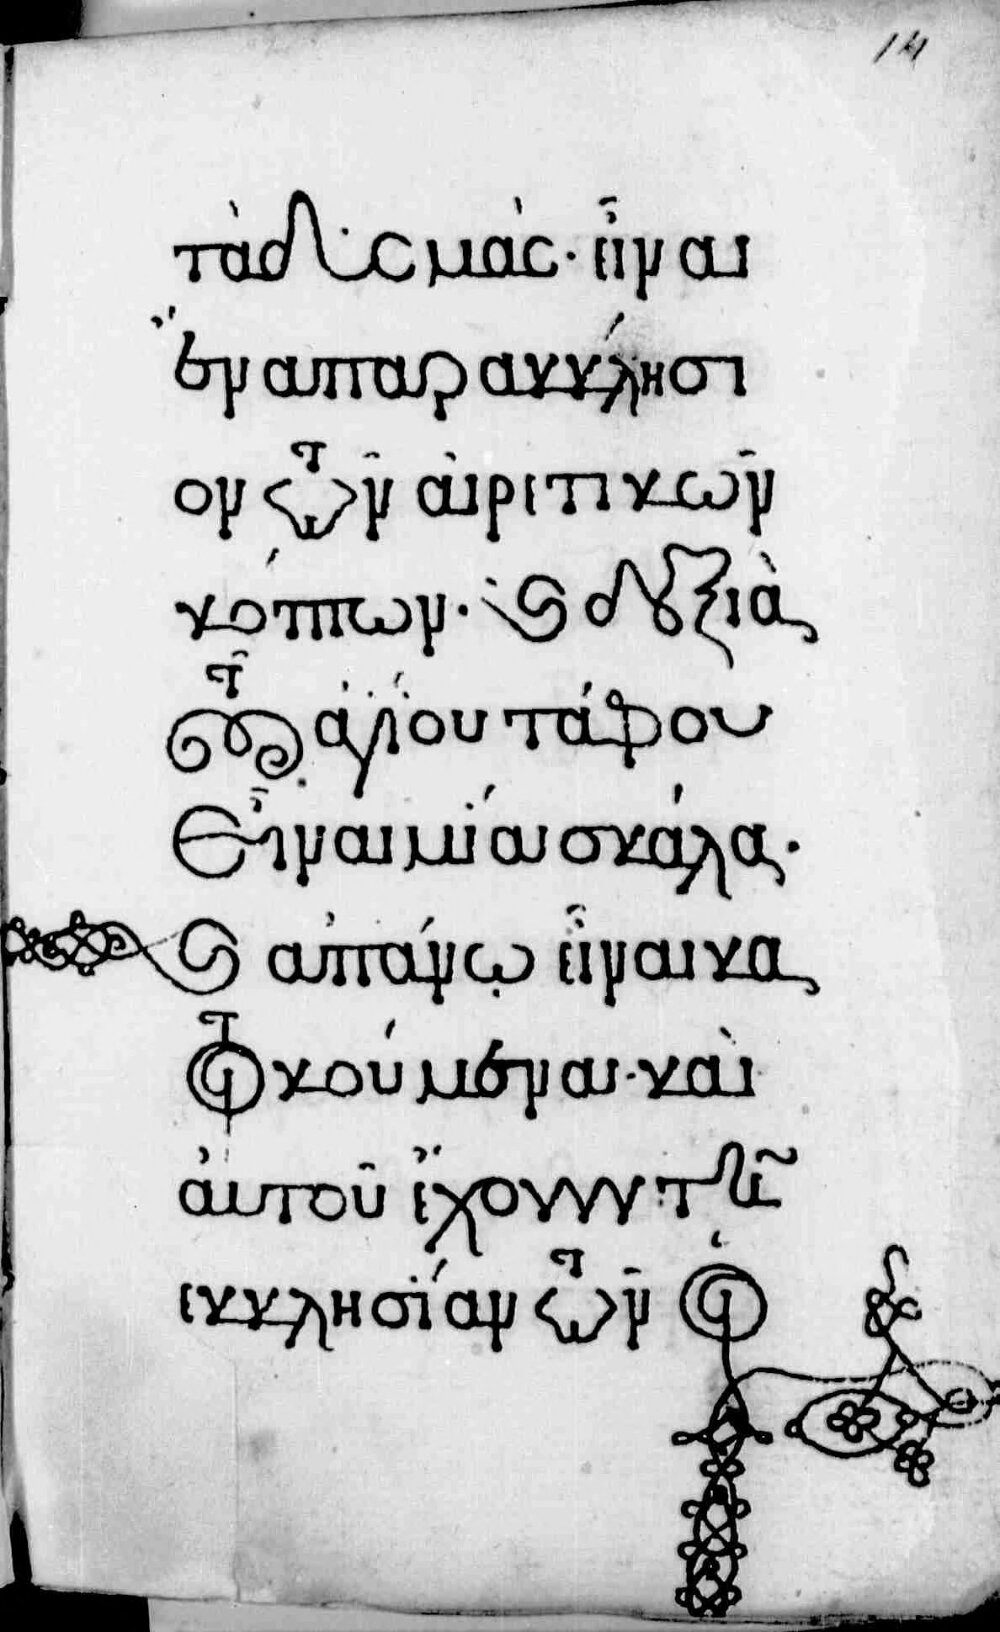 14
μὰς· εἶναι
ἕναπαρακκλήσι
ον τῶν αἱριτικῶν
κόπτων· δεξιὰ
τοῦ ἁγίου τάφου
εἶναι μίαι σκάλα·
ἀπάνω εἶναι κα
τοικούμεναι· καὶ
ἀυτοῦ ἔχουνν τὴν
εκκλησίαν τῶν ὁ